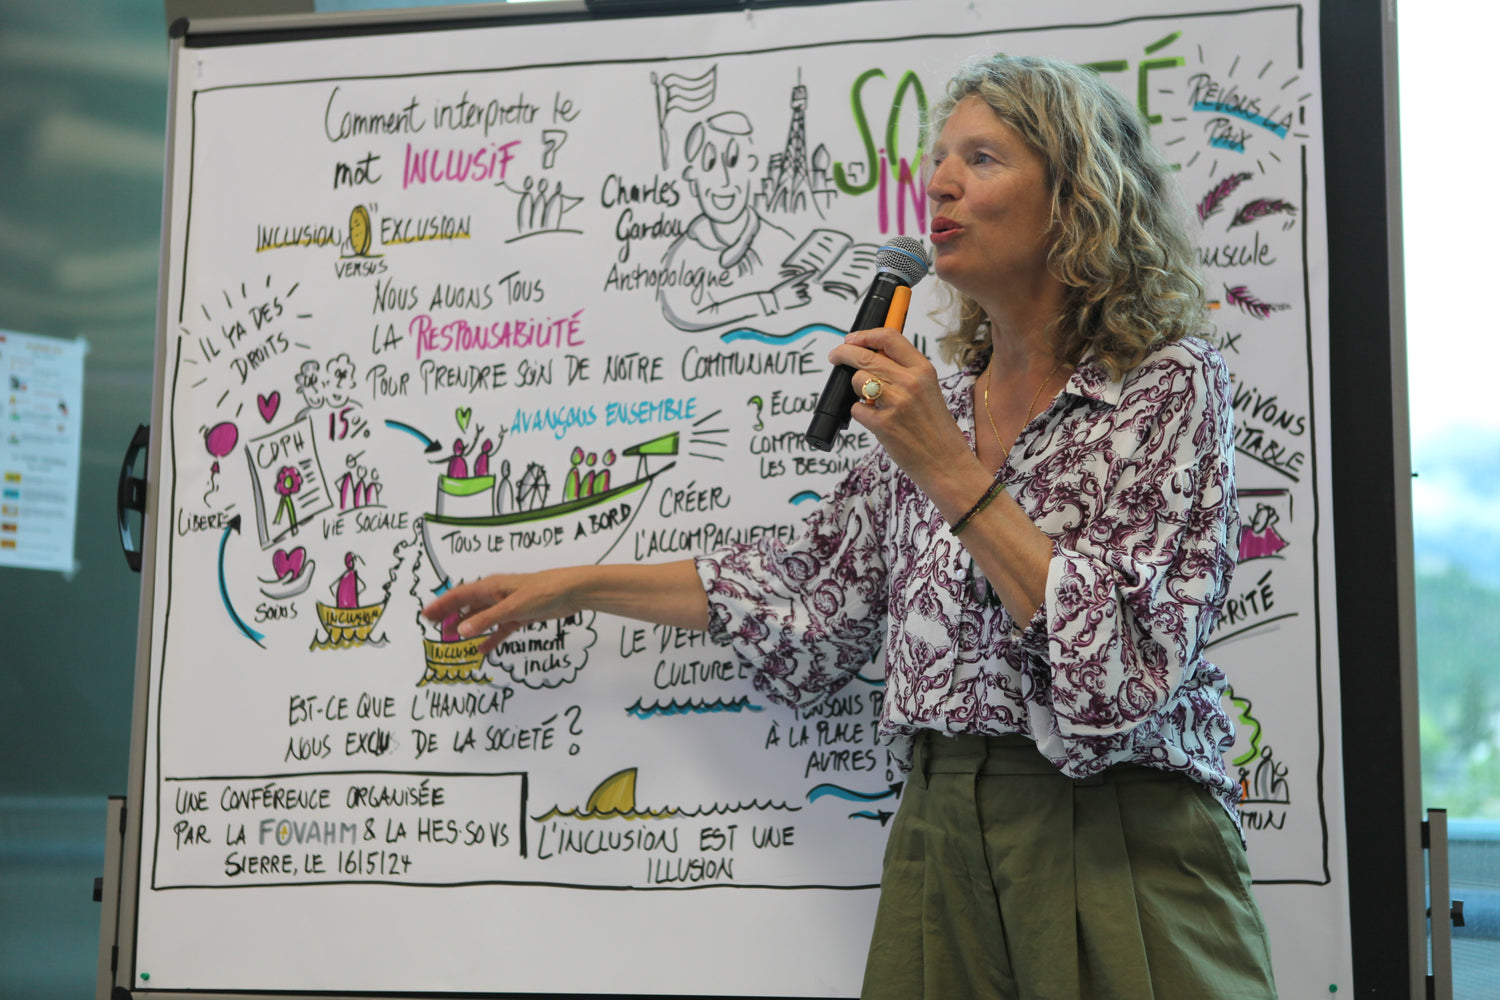 Comment interpréter le
mot INCLUSIF ?
INCLUSION EXCLUSION
VERSUS
Charles
Gardou
Anthropologue
SO TÉ
IN
RÊVONS LA
PAIX
NOUS AVONS TOUS
LA RESPONSABILITÉ
POUR PRENDRE SOIN DE NOTRE COMMUNAUTÉ
IL Y A DES
DROITS
15%
CDPH
LIBERTÉ
VIE SOCIALE
SOINS
INCLUSION
AVANÇONS ENSEMBLE
TOUS LE MONDE A BORD
INCLUSION
vraiment
inclus
ÉCOU
COMPR DRE
LES BESOIN
CRÉER
L'ACCOMPAGNEMEN
LE DÉFI
CULTUREL
PENSONS
À LA PLACE
AUTRES !
EST-CE QUE L'HANDICAP
NOUS EXCLUS DE LA SOCIETÉ ?
UNE CONFÉRENCE ORGANISÉE
PAR LA FOVAHM & LA HES·SO VS
SIERRE, LE 16/5/24
L'INCLUSION EST UNE
ILLUSION
uscule
UX
VIVONS
ITABLE
ARITÉ